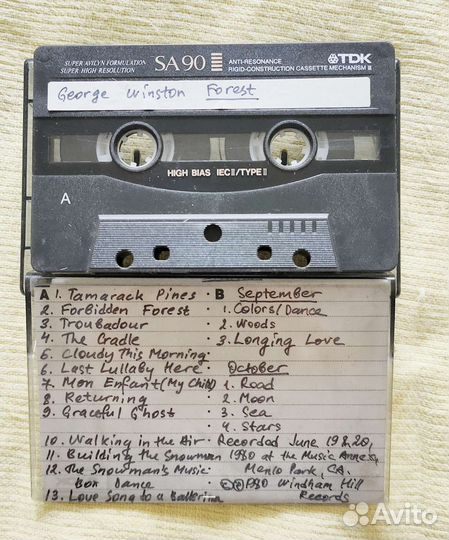 SUPER AVILYN FORMULATION
SUPER HIGH RESOLUTION
SA90
ANTI-RESONANCE
RIGID-CONSTRUCTION CASSETTE MECHANISM II
TDK
George Winston Forest
HIGH BIAS IECII/TYPE II
A
A 1. Tamarack Pines · B September
2. Forbidden Forest 1. Colors/Dance
3. Troubadour 2. Woods
4. The Cradle 3. Longing Love
5. Cloudy This Morning
6. Last Lullaby Here · October
7. Mon Enfant (My Child) 1. Road
8. Returning 2. Moon
9. Graceful Ghost 3. Sea
4. Stars
10. Walking in the Air · Recorded June 19&20,
11. Building the Snowman 1980 at the Music Annex,
12. The Snowman's Music Menlo Park, CA.
Box Dance ©℗1980 Windham Hill
13. Love Song to a Ballerina Records
Avito